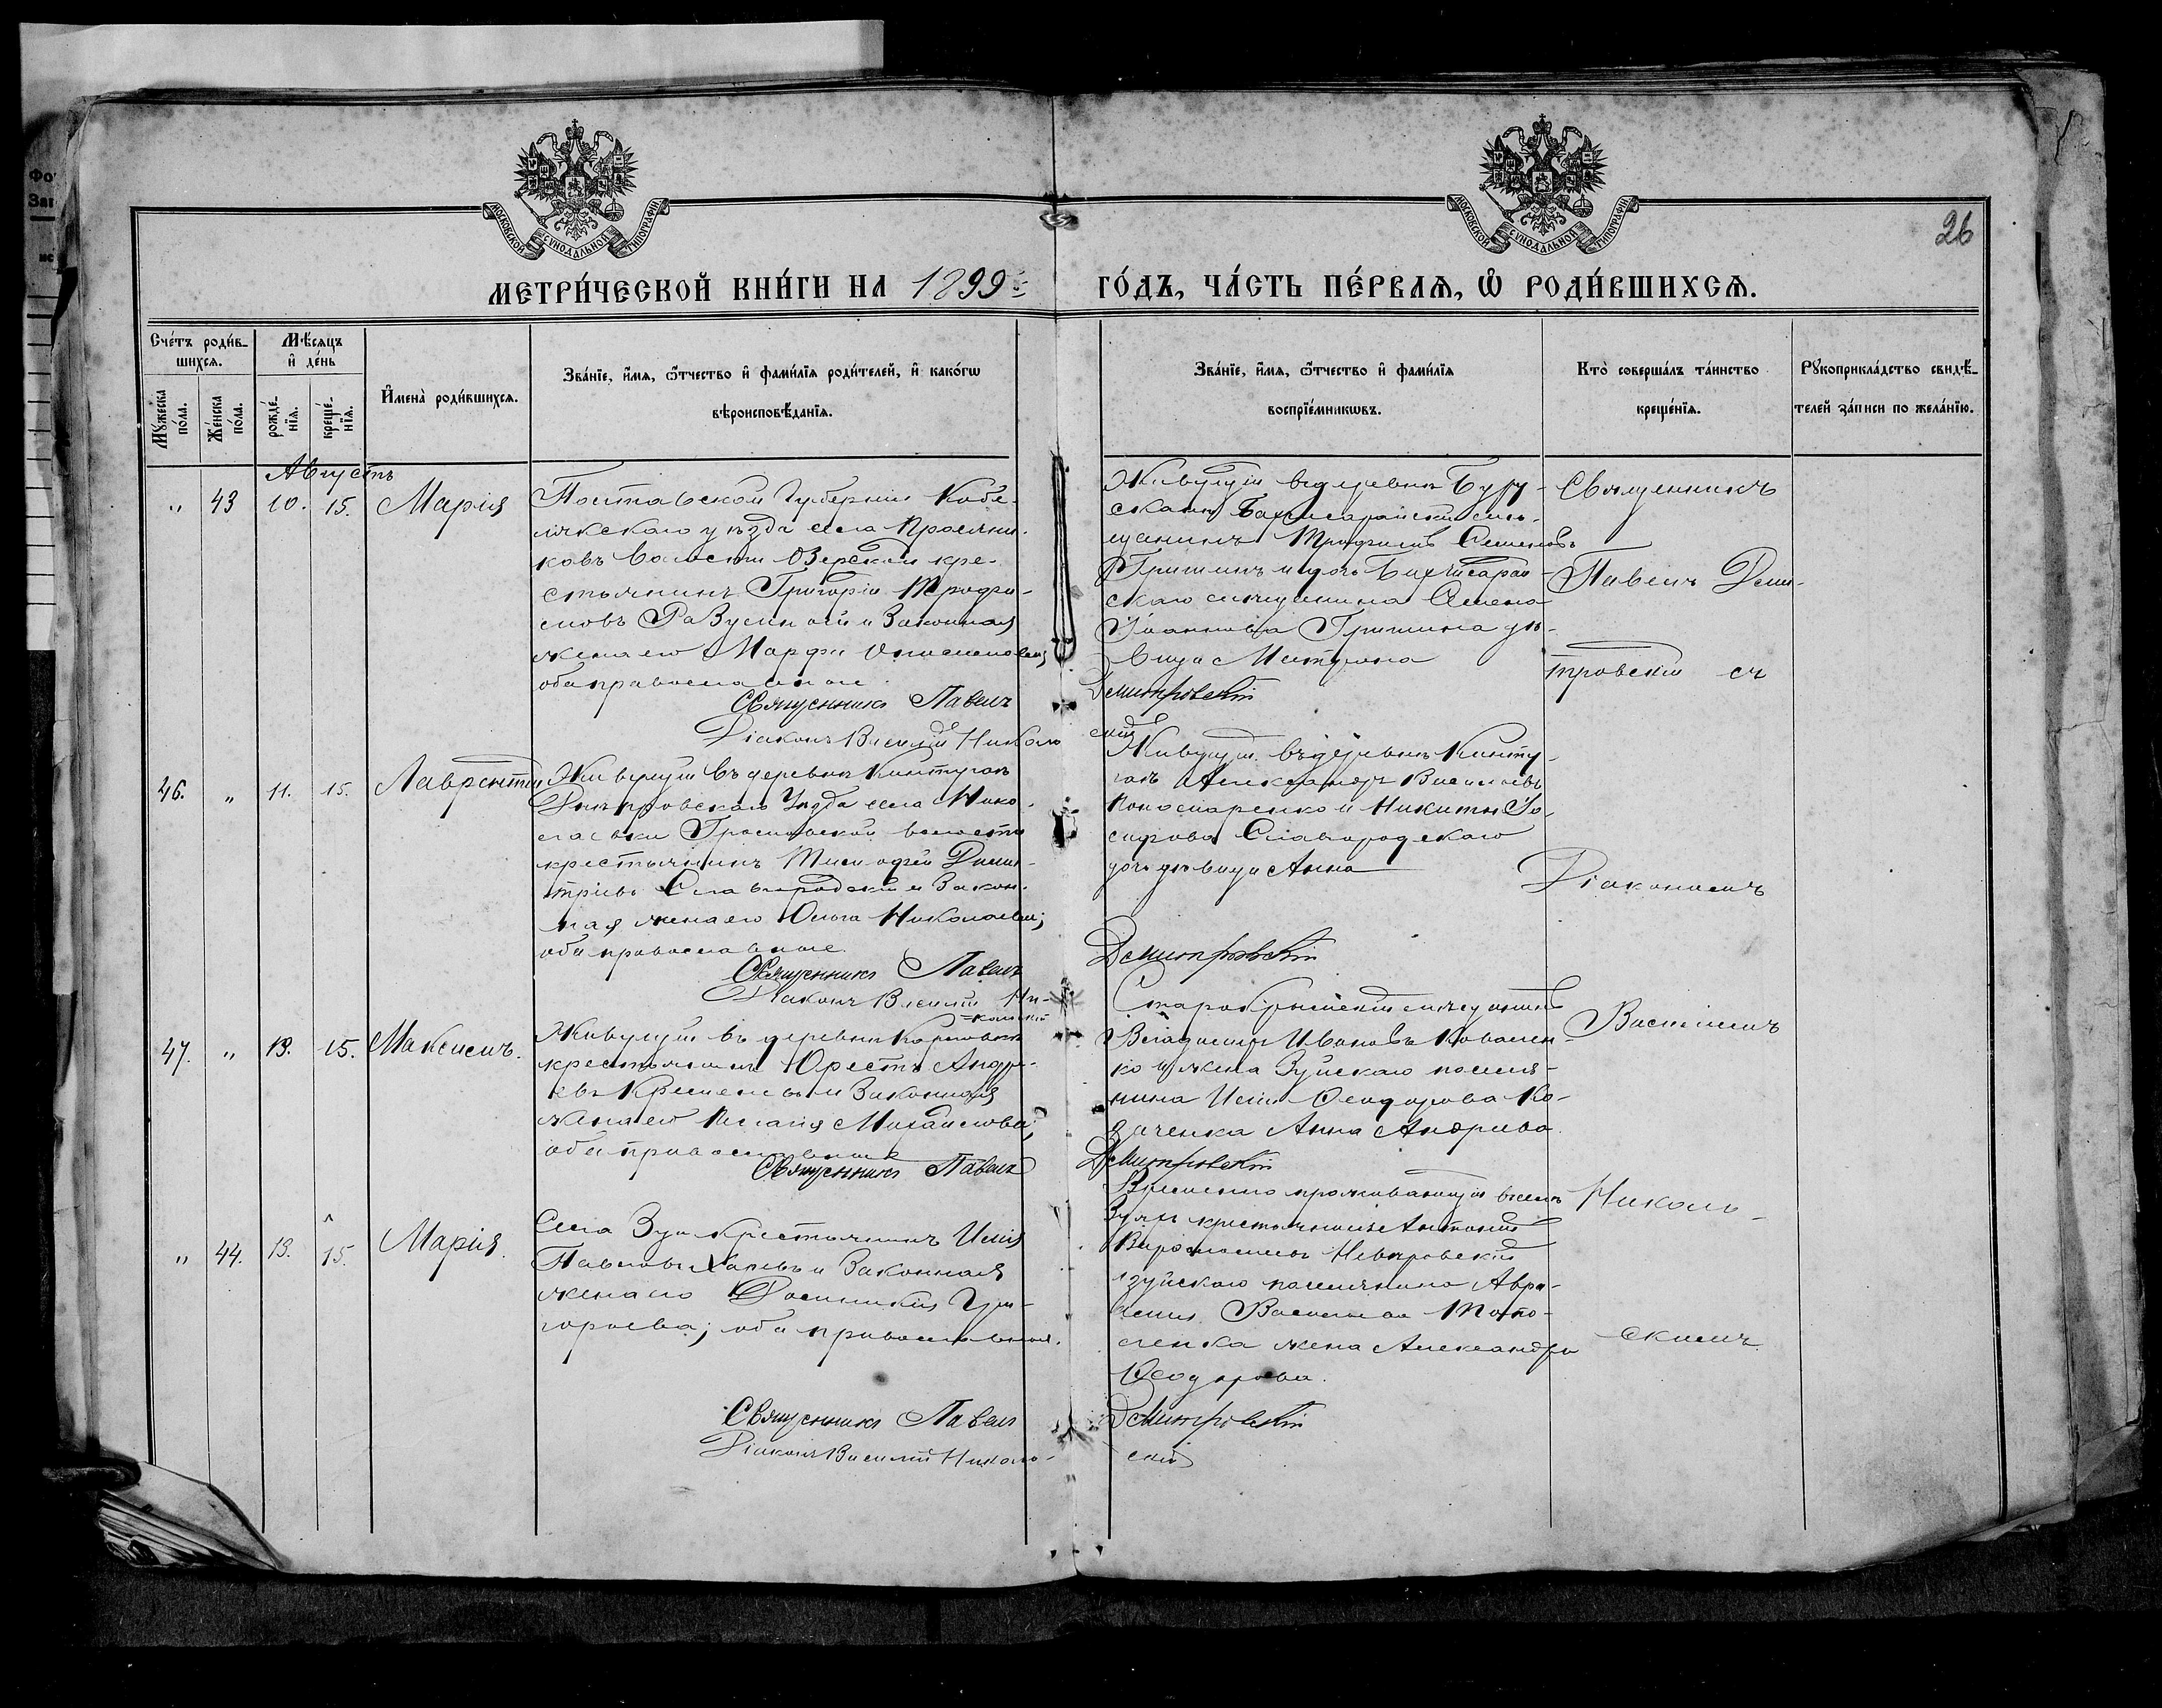 26
МЕТРИ́ЧЕСКОЙ КНИ́ГИ НА 1899
ГО́ДЪ, ЧА́СТЬ ПЕ́РВАѦ, Ѡ РОДИ́ВШИХСѦ.
МОСКОВСКОЙ СѴНОДАЛЬНОЙ ТИПОГРАФІИ
МОСКОВСКОЙ СѴНОДАЛЬНОЙ ТИПОГРАФІИ
Сче́тъ роди́в-
шихсѧ.
Мꙋ́жеска по́ла.
Же́нска по́ла.
Мѣ́сѧцъ
и҆ де́нь
рожде́-нїѧ.
креще́-нїѧ.
И҆мена̀ роди́вшихсѧ.
Зва́нїе, и҆́мѧ, ѻ҆́тчество и҆ фами́лїѧ роди́телей, и҆ како́гѡ
вѣроисповѣ́данїѧ.
Зва́нїе, и҆́мѧ, ѻ҆́тчество и҆ фами́лїѧ
воспрїе́мникѡвъ.
Кто̀ соверша́лъ та́инство
креще́нїѧ.
Рꙋкоприкла́дство свидѣ́-
телей за́писи по жела́нїю.
Августъ
„ 43 10. 15. Марія
Полтавской Губерніи Кобе-
лякскаго уѣзда села Просяни-
ковъ волости Озерской кре-
стьянинъ Григорій Трофи-
мовъ и Законная
жена его Марфа
оба православные.
Священникъ Павелъ
Діаконъ Василій Николь
Живущій въ деревнѣ Буру-
Бахчисарайскій мѣ-
щанинъ Трофимъ Семеновъ
Гришинъ и дочь Бахчисарай-
скаго мѣщанина Семена
Іоаннова Гришина дѣ-
вица Матрона
Демитровскій
скій
Священникъ
Павелъ Деми-
тровскій съ
46. „ 11. 15. Лаврентій
Живущій въ деревнѣ Кинтугай
Днѣпровскаго Уѣзда села Нико-
волости
крестьянинъ Тимофей Дими-
тріевъ Славгородскій и Закон-
ная жена его Ольга Николаева;
оба православные.
Священникъ Павелъ
Діаконъ Василій Ни-
кольскій
Живущій въ деревнѣ Кинту-
гай Александръ Васильевъ
Пономаренко и Никиты Іо-
сифова Славгородскаго
дочь дѣвица Анна
Демитровскій
Діакономъ
47. „ 13. 15. Максимъ.
Живущій въ деревнѣ
крестьянинъ Орестъ Андре-
евъ и Законная
жена его Михайлова;
оба православные
Священникъ Павелъ
Старокрымскій мѣщанинъ
Владимиръ Ивановъ Ковален-
ко и жена Зуйскаго поселя-
нина Ильи Ѳеодорова Ко-
заченка Анна Андреева.
Демитровскій
Василіемъ
„ 44. 13. 15. Марія.
Села Зуи крестьянинъ Илія
Павловъ и Законная
жена его Домникія Гри-
горьева; оба православные.
Священникъ Павелъ
Діаконъ Василій Николь-
Временно проживающій въ селѣ
Зуяхъ крестьянинъ Антоній
Невѣровскій
Зуйскаго поселянина Авра-
амія Васильева Топо-
ленка жена Александра
Ѳеодорова.
Демитровскій
скій
Николь-
скимъ.